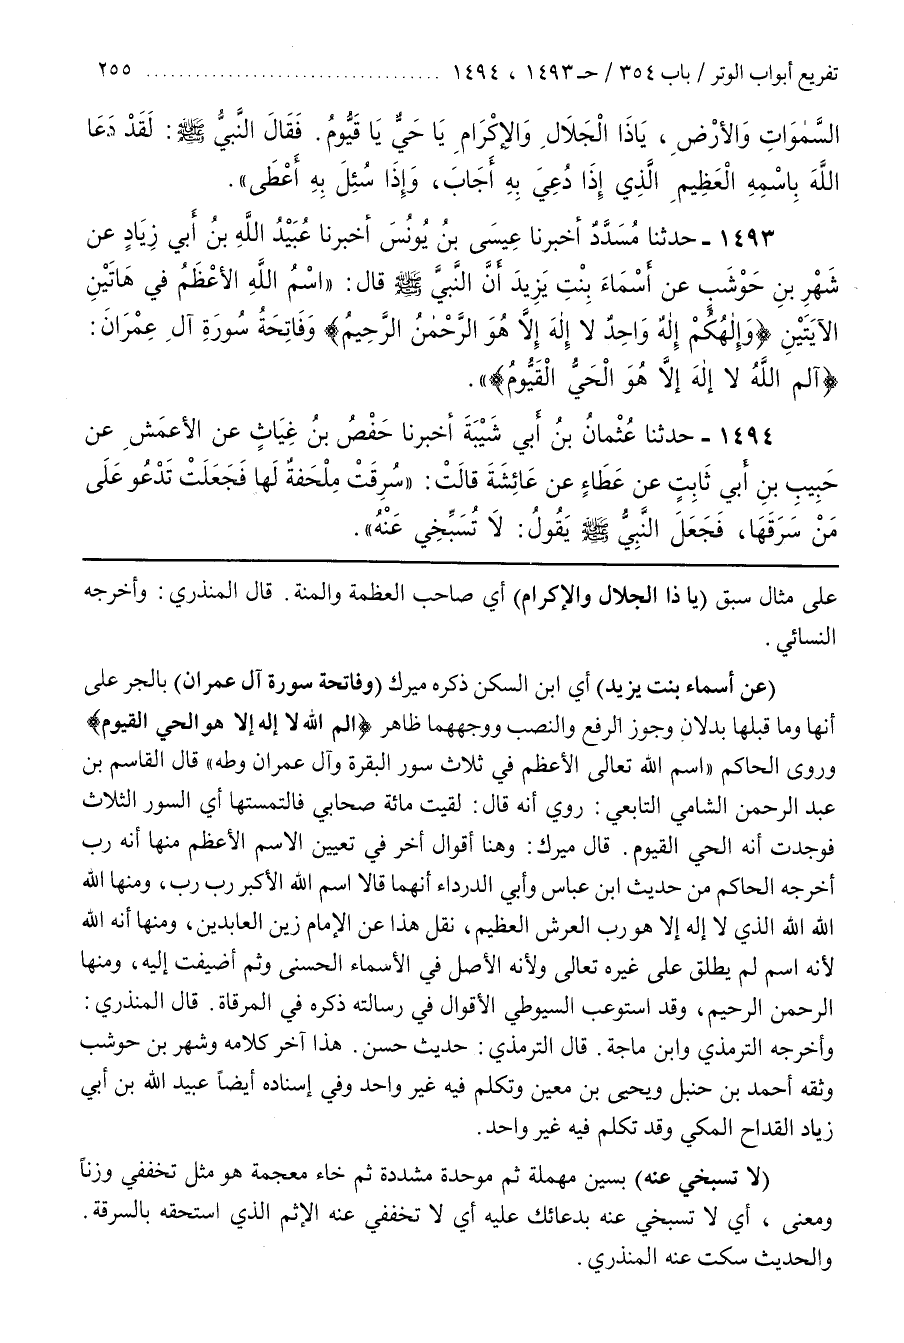 تفريع أبواب الوتر / باب ٣٥٤ / حـ ١٤٩٣ ، ١٤٩٤ .................................... ٢٥٥
السَّمٰوَاتِ وَالأَرْضِ ، يَاذَا الْجَلَالِ وَالإِكْرَامِ يَا حَيُّ يَا قَيُّومُ. فَقَالَ النَّبيُّ ﷺ: لَقَدْ دَعَا
اللَّهَ بِاسْمِهِ الْعَظِيمِ الَّذِي إِذَا دُعِيَ بِهِ أَجَابَ، وَإِذَا سُئِلَ بِهِ أَعْطَى».
١٤٩٣ ـ حدثنا مُسَدَّدٌ أخبرنا عِيسَى بنُ يُونُسَ أخبرنا عُبَيْدُ اللَّهِ بنُ أَبي زِيَادٍ عن
شَهْرِ بنِ حَوْشَبٍ عن أَسْمَاءَ بِنْتِ يَزِيدَ أَنَّ النَّبيَّ ﷺ قال: «اسْمُ اللَّهِ الأعْظَمُ في هَاتَيْنِ
الآيَتَيْنِ ﴿وَإِلٰهُكُمْ إِلٰهٌ وَاحِدٌ لا إِلٰهَ إِلَّا هُوَ الرَّحْمٰنُ الرَّحِيمُ﴾ وَفَاتِحَةُ سُورَةِ آلِ عِمْرَانَ:
﴿آلم اللَّهُ لا إِلٰهَ إِلَّا هُوَ الْحَيُّ الْقَيُّومُ﴾».
١٤٩٤ ـ حدثنا عُثْمانُ بنُ أَبي شَيْبَةَ أخبرنا حَفْصُ بنُ غِيَاثٍ عن الأعمَشِ عن
حَبِيبِ بنِ أَبي ثَابِتٍ عن عَطَاءٍ عن عَائِشَةَ قالَتْ: «سُرِقَتْ مِلْحَفةٌ لَها فَجَعَلَتْ تَدْعُو عَلَى
مَنْ سَرَقَهَا، فَجَعَلَ النَّبيُّ ﷺ يَقُولُ: لَا تُسَبِّخي عَنْهُ».
على مثال سبق (يا ذا الجلال والإكرام) أي صاحب العظمة والمنة. قال المنذري: وأخرجه
النسائي.
(عن أسماء بنت يزيد) أي ابن السكن ذكره ميرك (وفاتحة سورة آل عمران) بالجر على
أنها وما قبلها بدلان وجوز الرفع والنصب ووجههما ظاهر ﴿الم الله لا إله إلا هو الحي القيوم﴾
وروى الحاكم «اسم الله تعالى الأعظم في ثلاث سور البقرة وآل عمران وطه» قال القاسم بن
عبد الرحمن الشامي التابعي: روي أنه قال: لقيت مائة صحابي فالتمستها أي السور الثلاث
فوجدت أنه الحي القيوم. قال ميرك: وهنا أقوال أخر في تعيين الاسم الأعظم منها أنه رب
أخرجه الحاكم من حديث ابن عباس وأبي الدرداء أنهما قالا اسم الله الأكبر رب رب، ومنها الله
الله الله الذي لا إله إلا هو رب العرش العظيم، نقل هذا عن الإمام زين العابدين، ومنها أنه الله
لأنه اسم لم يطلق على غيره تعالى ولأنه الأصل في الأسماء الحسنى وثم أضيفت إليه، ومنها
الرحمن الرحيم، وقد استوعب السيوطي الأقوال في رسالته ذكره في المرقاة. قال المنذري:
وأخرجه الترمذي وابن ماجة. قال الترمذي: حديث حسن. هذا آخر كلامه وشهر بن حوشب
وثقه أحمد بن حنبل ويحيى بن معين وتكلم فيه غير واحد وفي إسناده أيضاً عبيد الله بن أبي
زياد القداح المكي وقد تكلم فيه غير واحد.
(لا تسبخي عنه) بسين مهملة ثم موحدة مشددة ثم خاء معجمة هو مثل تخففي وزناً
ومعنى ، أي لا تسبخي عنه بدعائك عليه أي لا تخففي عنه الإثم الذي استحقه بالسرقة.
والحديث سكت عنه المنذري.